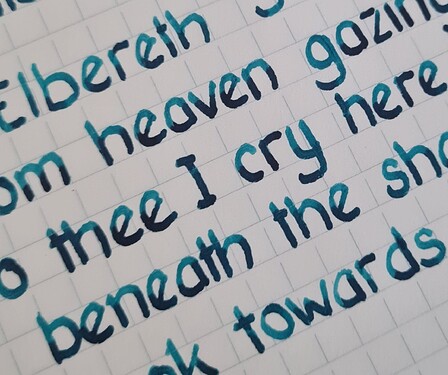 Elbereth g
om heaven gazin
o thee I cry here
beneath the sha
ok towards